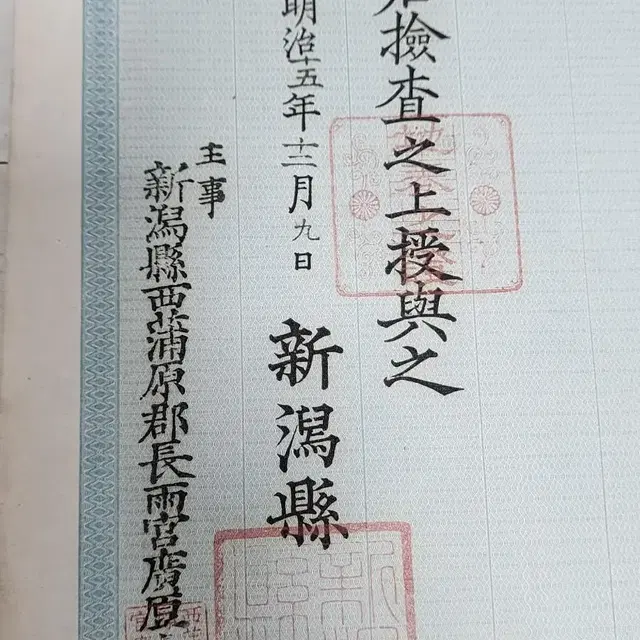 檢査之上授與之
明治十五年十二月九日
新潟縣
主事
新潟縣西蒲原郡長雨宮廣